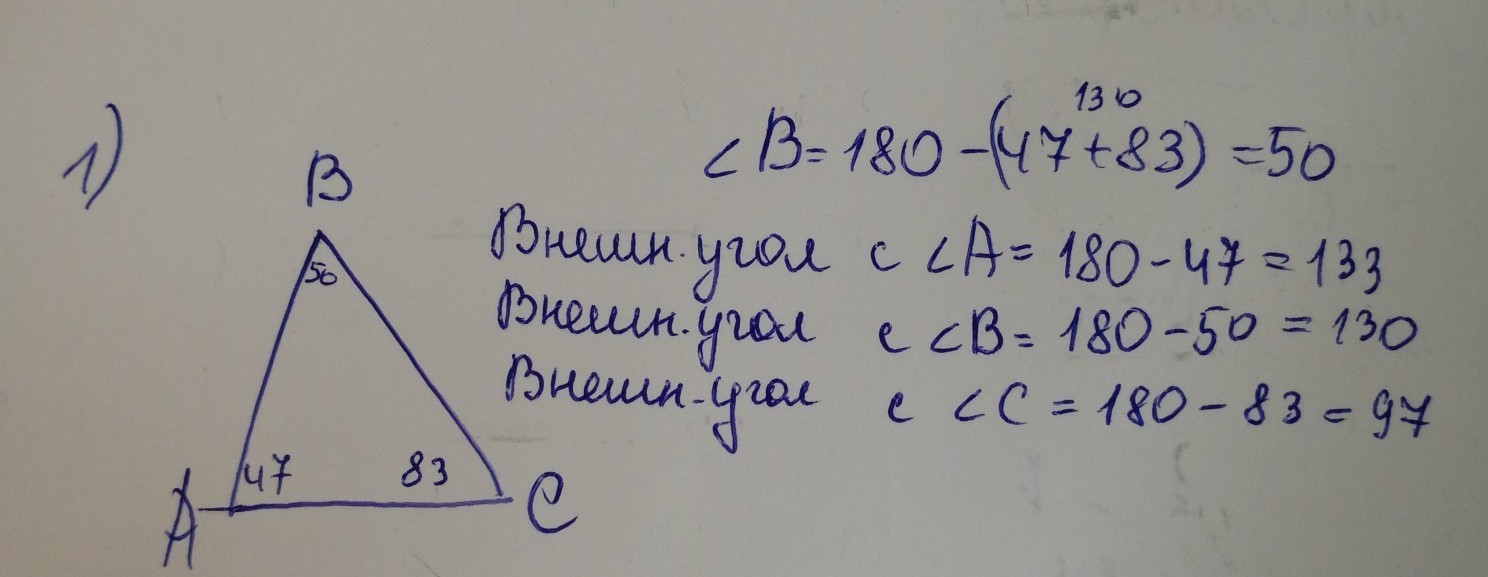 1)
130
∠B = 180 - (47 + 83) = 50
B
Внешн. угол с ∠A = 180 - 47 = 133
50
Внешн. угол с ∠B = 180 - 50 = 130
Внешн. угол с ∠C = 180 - 83 = 97
47 83
A C